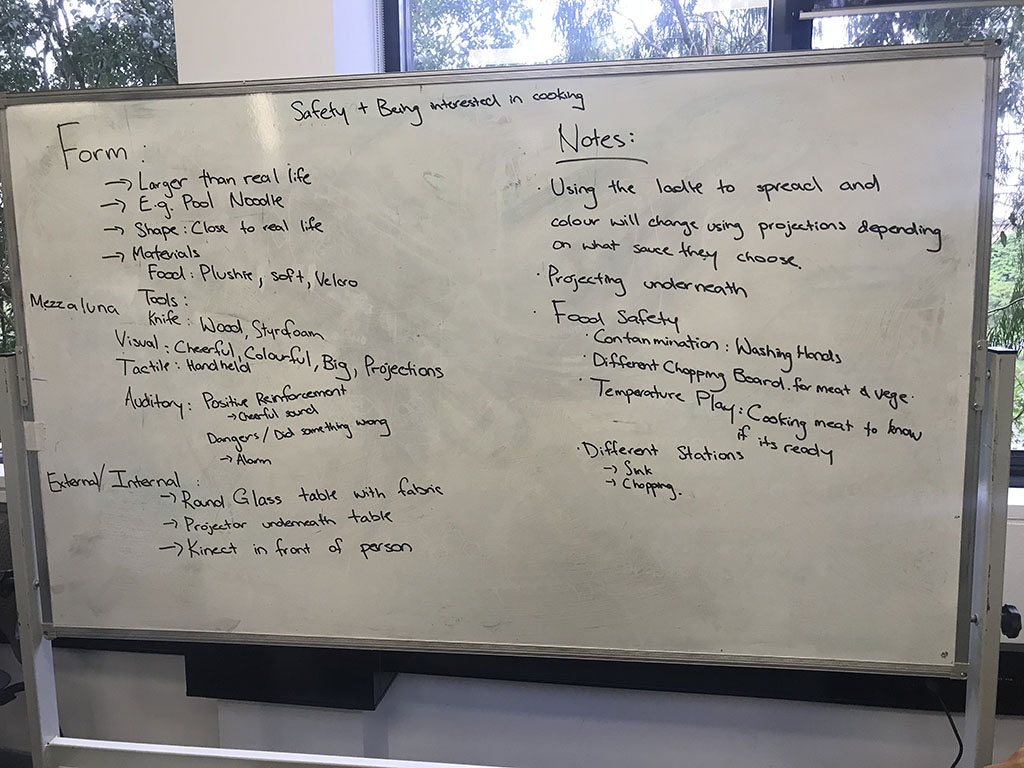 Safety + Being interested in cooking
Form :
→ Larger than real life
→ E.g. Pool Noodle
→ Shape : Close to real life
→ Materials
Food : Plushie, soft, Velcro
Mezzaluna
Tools :
Knife : Wood, Styrofoam
Visual : Cheerful, Colourful, Big, Projections
Tactile : Handheld
Auditory : Positive Reinforcement
→ Cheerful sound
Dangers / Did something wrong
→ Alarm
External/ Internal :
→ Round Glass table with fabric
→ Projector underneath table
→ Kinect in front of person
Notes:
· Using the ladle to spread and
colour will change using projections depending
on what sauce they choose.
· Projecting underneath
· Food Safety
· Contamination : Washing Hands
· Different Chopping Board. for meat & vege.
· Temperature Play : Cooking meat to know
if its ready
· Different Stations
→ Sink
→ Chopping.